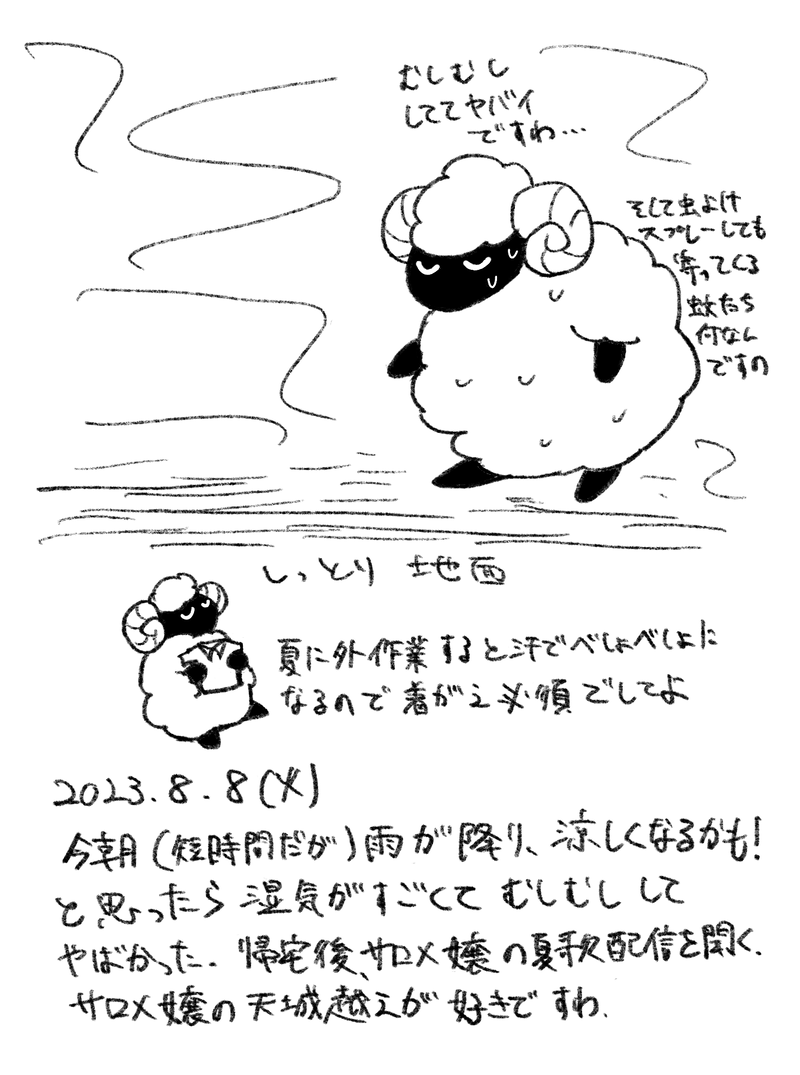 むしむし
しててヤバイ
ですわ…
そして虫よけ
スプレーしても
寄ってくる
蚊たち
何なん
ですの
しっとり 地面
夏に外作業すると汗でべしょべしょに
なるので着がえ必須でしてよ
2023.8.8(火)
今朝(短時間だが)雨が降り、涼しくなるかも!
と思ったら湿気がすごくてむしむしして
やばかった. 帰宅後、サロメ嬢の夏歌配信を聞く.
サロメ嬢の天城越えが好きですわ.